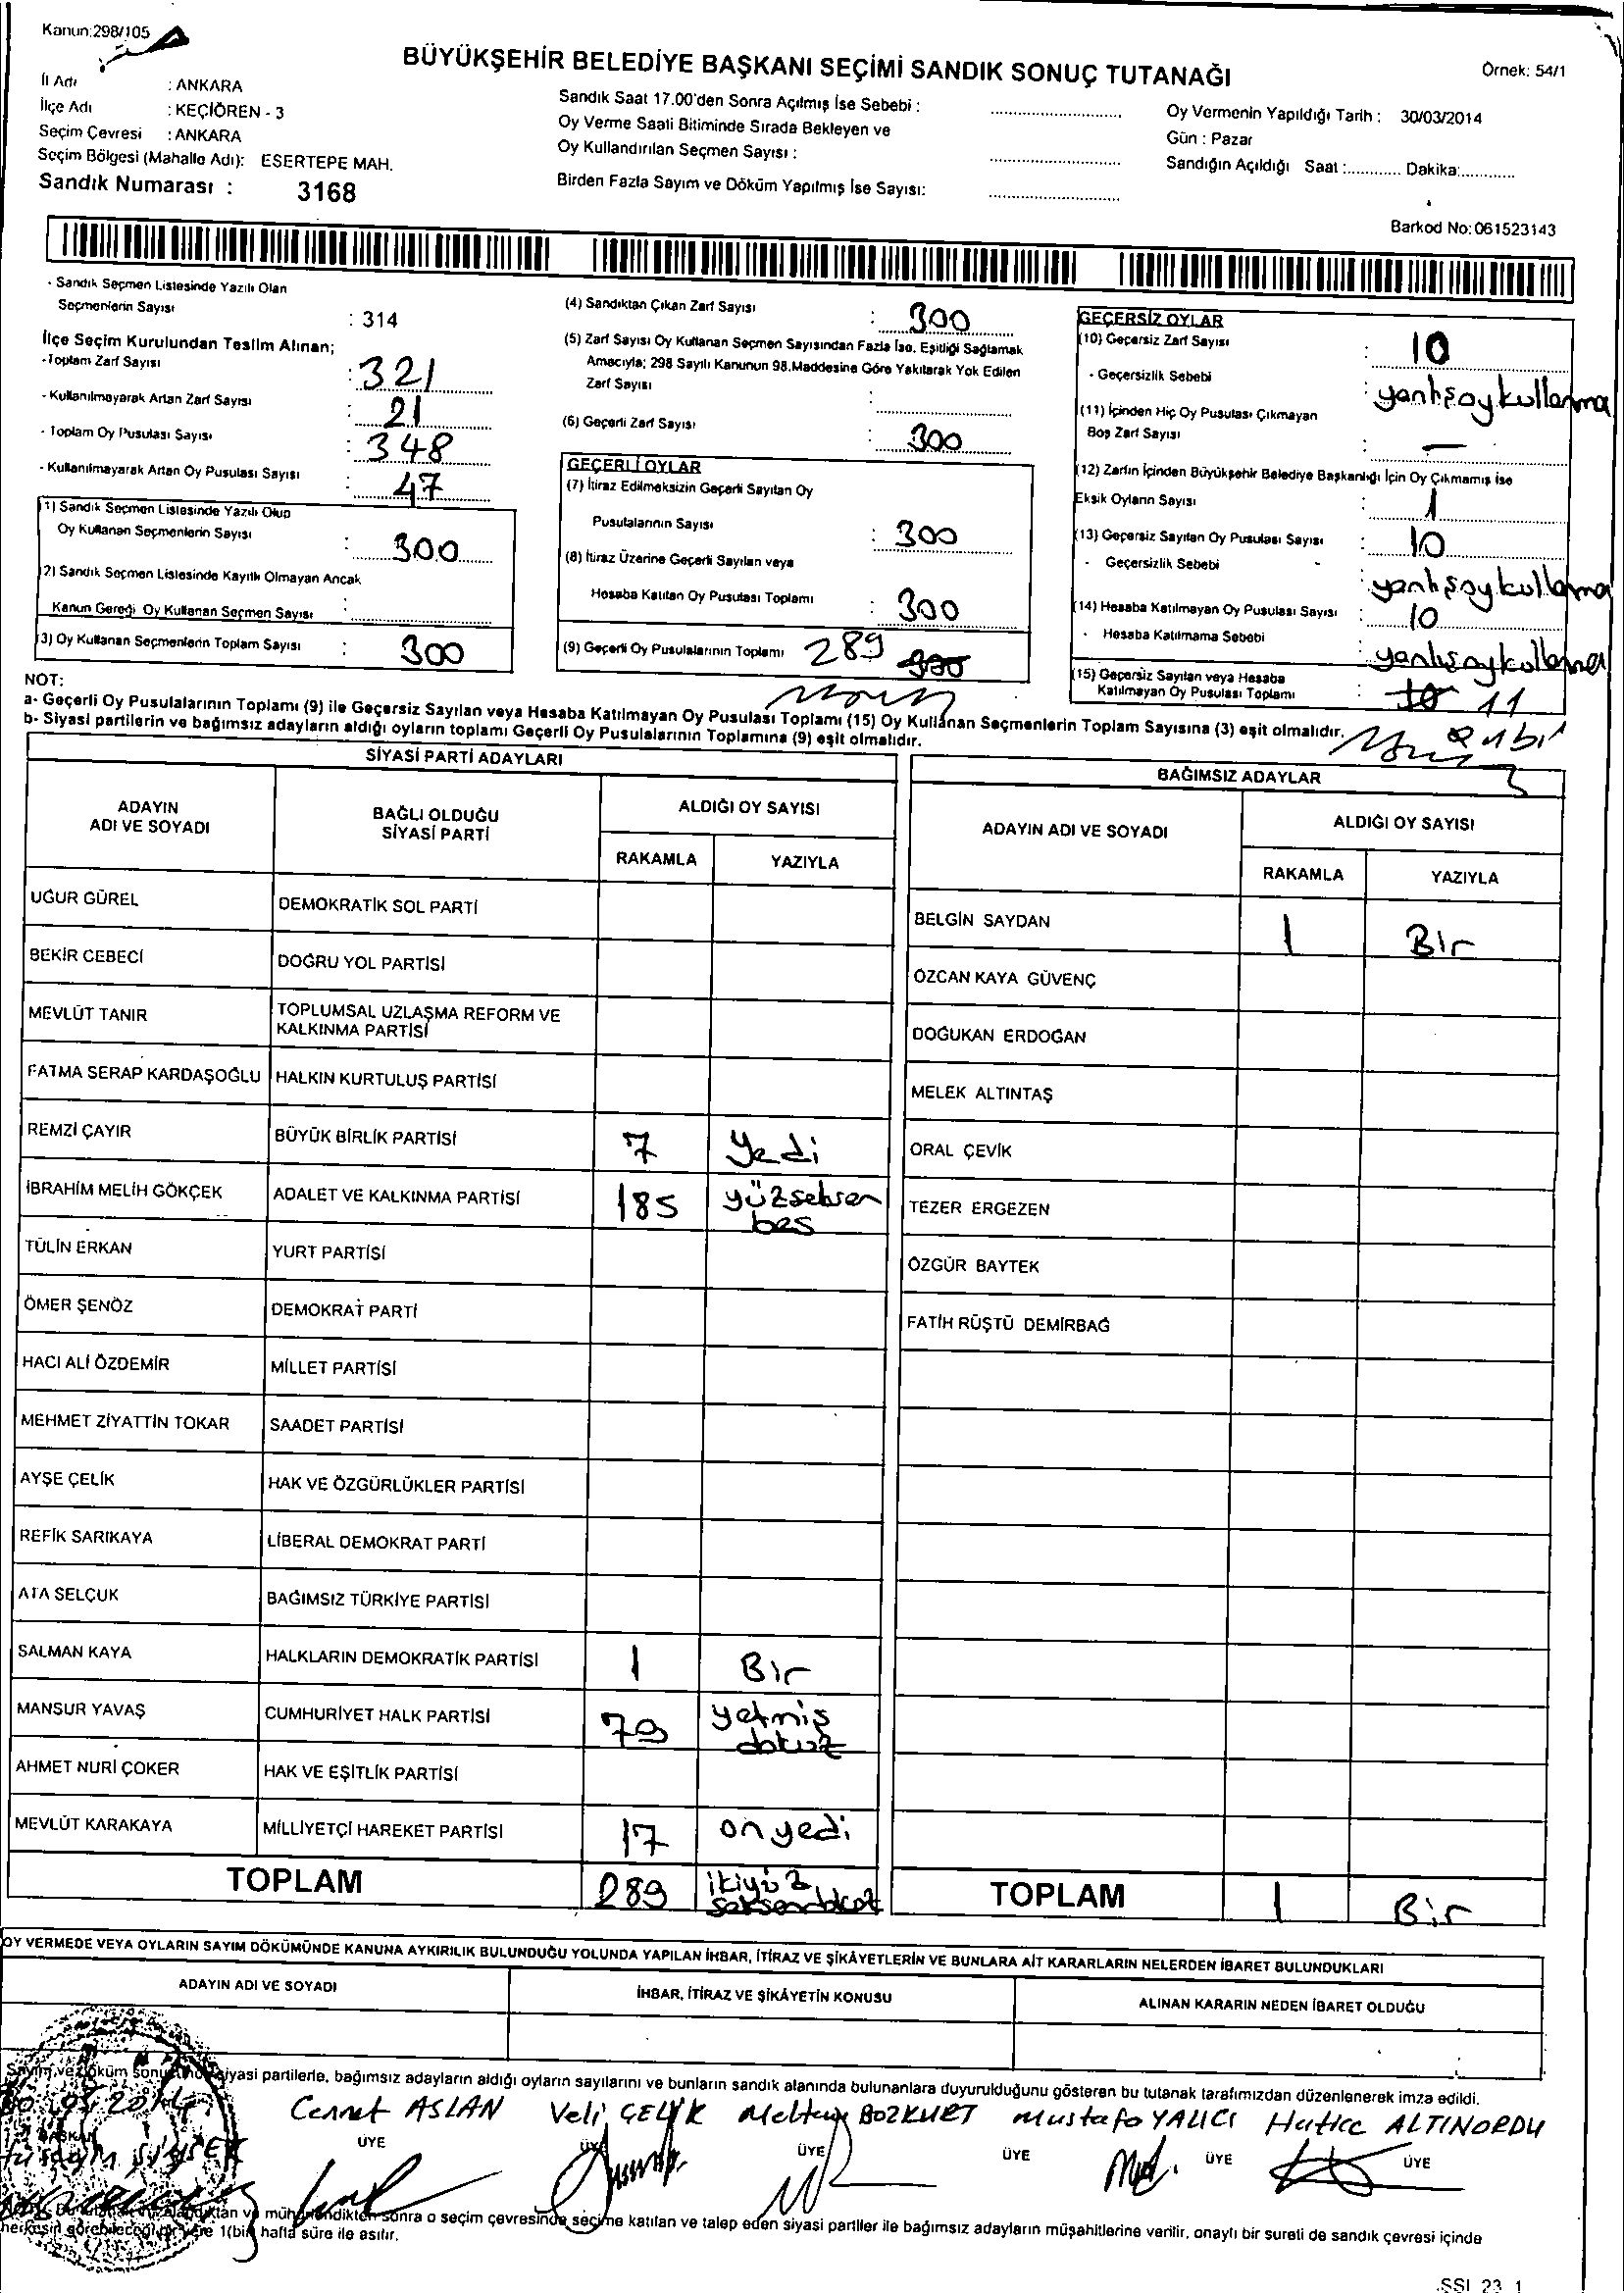 Kanun:298/105
BÜYÜKŞEHİR BELEDİYE BAŞKANI SEÇİMİ SANDIK SONUÇ TUTANAĞI
Örnek: 54/1
İl Adı : ANKARA
İlçe Adı : KEÇİÖREN - 3
Seçim Çevresi : ANKARA
Seçim Bölgesi (Mahalle Adı): ESERTEPE MAH.
Sandık Numarası : 3168
Sandık Saat 17.00'den Sonra Açılmış İse Sebebi :
Oy Verme Saati Bitiminde Sırada Bekleyen ve
Oy Kullandırılan Seçmen Sayısı :
Birden Fazla Sayım ve Döküm Yapılmış İse Sayısı:
Oy Vermenin Yapıldığı Tarih : 30/03/2014
Gün : Pazar
Sandığın Açıldığı Saat :............. Dakika:............
Barkod No:061523143
- Sandık Seçmen Listesinde Yazılı Olan
Seçmenlerin Sayısı : 314
İlçe Seçim Kurulundan Teslim Alınan;
-Toplam Zarf Sayısı : 321
- Kullanılmayarak Artan Zarf Sayısı : 21
- Toplam Oy Pusulası Sayısı : 348
- Kullanılmayarak Artan Oy Pusulası Sayısı : 47
(1) Sandık Seçmen Listesinde Yazılı Olup
Oy Kullanan Seçmenlerin Sayısı : 300
(2) Sandık Seçmen Listesinde Kayıtlı Olmayan Ancak
Kanun Gereği Oy Kullanan Seçmen Sayısı :
(3) Oy Kullanan Seçmenlerin Toplam Sayısı : 300
(4) Sandıktan Çıkan Zarf Sayısı : 300
(5) Zarf Sayısı Oy Kullanan Seçmen Sayısından Fazla İse, Eşitliği Sağlamak
Amacıyla; 298 Sayılı Kanunun 98.Maddesine Göre Yakılarak Yok Edilen
Zarf Sayısı :
(6) Geçerli Zarf Sayısı : 300
GEÇERLİ OYLAR
(7) İtiraz Edilmeksizin Geçerli Sayılan Oy
Pusulalarının Sayısı : 300
(8) İtiraz Üzerine Geçerli Sayılan veya
Hesaba Katılan Oy Pusulası Toplamı : 300
(9) Geçerli Oy Pusulalarının Toplamı 289 300
GEÇERSİZ OYLAR
(10) Geçersiz Zarf Sayısı : 10
- Geçersizlik Sebebi : yanlış oy kullanma
(11) İçinden Hiç Oy Pusulası Çıkmayan
Boş Zarf Sayısı : -
(12) Zarfın İçinden Büyükşehir Belediye Başkanlığı İçin Oy Çıkmamış ise
Eksik Oyların Sayısı : 1
(13) Geçersiz Sayılan Oy Pusulası Sayısı : 10
- Geçersizlik Sebebi : yanlış oy kullanma
(14) Hesaba Katılmayan Oy Pusulası Sayısı : 10
- Hesaba Katılmama Sebebi : yanlış oy kullanma
(15) Geçersiz Sayılan veya Hesaba
Katılmayan Oy Pusulası Toplamı : 10 11
NOT:
a- Geçerli Oy Pusulalarının Toplamı (9) ile Geçersiz Sayılan veya Hesaba Katılmayan Oy Pusulası Toplamı (15) Oy Kullanan Seçmenlerin Toplam Sayısına (3) eşit olmalıdır.
b- Siyasi partilerin ve bağımsız adayların aldığı oyların toplamı Geçerli Oy Pusulalarının Toplamına (9) eşit olmalıdır.
SİYASİ PARTİ ADAYLARI
ADAYIN ADI VE SOYADI
BAĞLI OLDUĞU SİYASİ PARTİ
ALDIĞI OY SAYISI
RAKAMLA YAZIYLA
UĞUR GÜREL DEMOKRATİK SOL PARTİ
BEKİR CEBECİ DOĞRU YOL PARTİSİ
MEVLÜT TANIR TOPLUMSAL UZLAŞMA REFORM VE
KALKINMA PARTİSİ
FATMA SERAP KARDAŞOĞLU HALKIN KURTULUŞ PARTİSİ
REMZİ ÇAYIR BÜYÜK BİRLİK PARTİSİ 7 Yedi
İBRAHİM MELİH GÖKÇEK ADALET VE KALKINMA PARTİSİ 185 yüzseksen
beş
TÜLİN ERKAN YURT PARTİSİ
ÖMER ŞENÖZ DEMOKRAT PARTİ
HACI ALİ ÖZDEMİR MİLLET PARTİSİ
MEHMET ZİYATTİN TOKAR SAADET PARTİSİ
AYŞE ÇELİK HAK VE ÖZGÜRLÜKLER PARTİSİ
REFİK SARIKAYA LİBERAL DEMOKRAT PARTİ
ATA SELÇUK BAĞIMSIZ TÜRKİYE PARTİSİ
SALMAN KAYA HALKLARIN DEMOKRATİK PARTİSİ 1 Bir
MANSUR YAVAŞ CUMHURİYET HALK PARTİSİ 79 yetmiş
dokuz
AHMET NURİ ÇOKER HAK VE EŞİTLİK PARTİSİ
MEVLÜT KARAKAYA MİLLİYETÇİ HAREKET PARTİSİ 17 onyedi
TOPLAM 289 ikiyüz
seksendokuz
BAĞIMSIZ ADAYLAR
ADAYIN ADI VE SOYADI
ALDIĞI OY SAYISI
RAKAMLA YAZIYLA
BELGİN SAYDAN 1 Bir
ÖZCAN KAYA GÜVENÇ
DOĞUKAN ERDOĞAN
MELEK ALTINTAŞ
ORAL ÇEVİK
TEZER ERGEZEN
ÖZGÜR BAYTEK
FATİH RÜŞTÜ DEMİRBAĞ
TOPLAM 1 Bir
OY VERMEDE VEYA OYLARIN SAYIM DÖKÜMÜNDE KANUNA AYKIRILIK BULUNDUĞU YOLUNDA YAPILAN İHBAR, İTİRAZ VE ŞİKÂYETLERİN VE BUNLARA AİT KARARLARIN NELERDEN İBARET BULUNDUKLARI
ADAYIN ADI VE SOYADI
İHBAR, İTİRAZ VE ŞİKÂYETİN KONUSU
ALINAN KARARIN NEDEN İBARET OLDUĞU
Sayım ve döküm siyasi partilerle, bağımsız adayların aldığı oyların sayılarını ve bunların sandık alanında bulunanlara duyurulduğunu gösteren bu tutanak tarafımızdan düzenlenerek imza edildi.
Cennet ASLAN Veli ÇELİK Meltem BOZKURT Mustafa YALICI Hatice ALTINORDU
BAŞKAN ÜYE ÜYE ÜYE ÜYE ÜYE ÜYE
mühürlendikten sonra o seçim çevresinde seçime katılan ve talep eden siyasi partiler ile bağımsız adayların müşahitlerine verilir, onaylı bir sureti de sandık çevresi içinde
herkesin görebileceği bir yere 1(bir) hafta süre ile asılır.
SSI 23 1